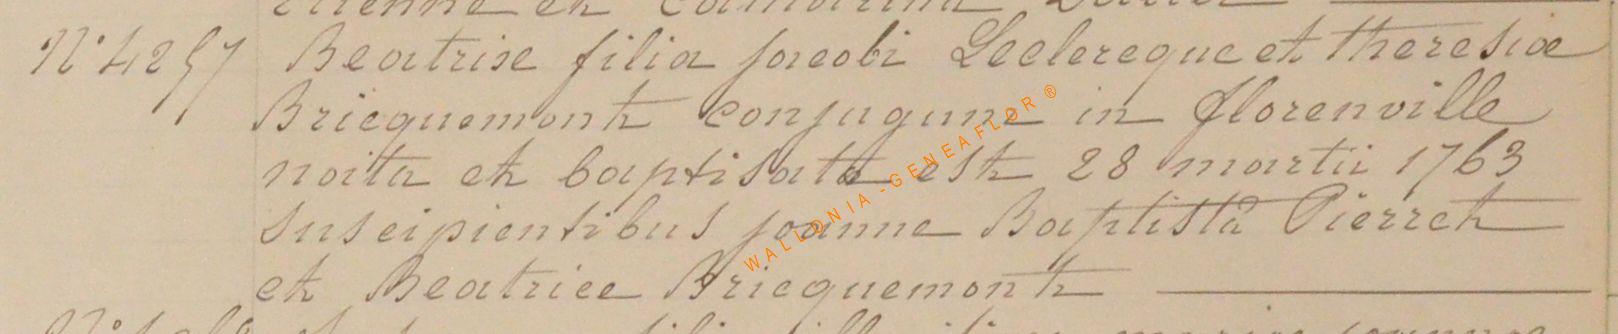 N° 4257 Beatrix filia jacobi Leclercque et theresiae
Bricquemont conjugum in florenville
nata et baptisata est 28 martii 1763
suscipientibus joanne Baptistâ Pierret
et Beatrice Bricquemont
WALLONIA-GENEAFLOR ®